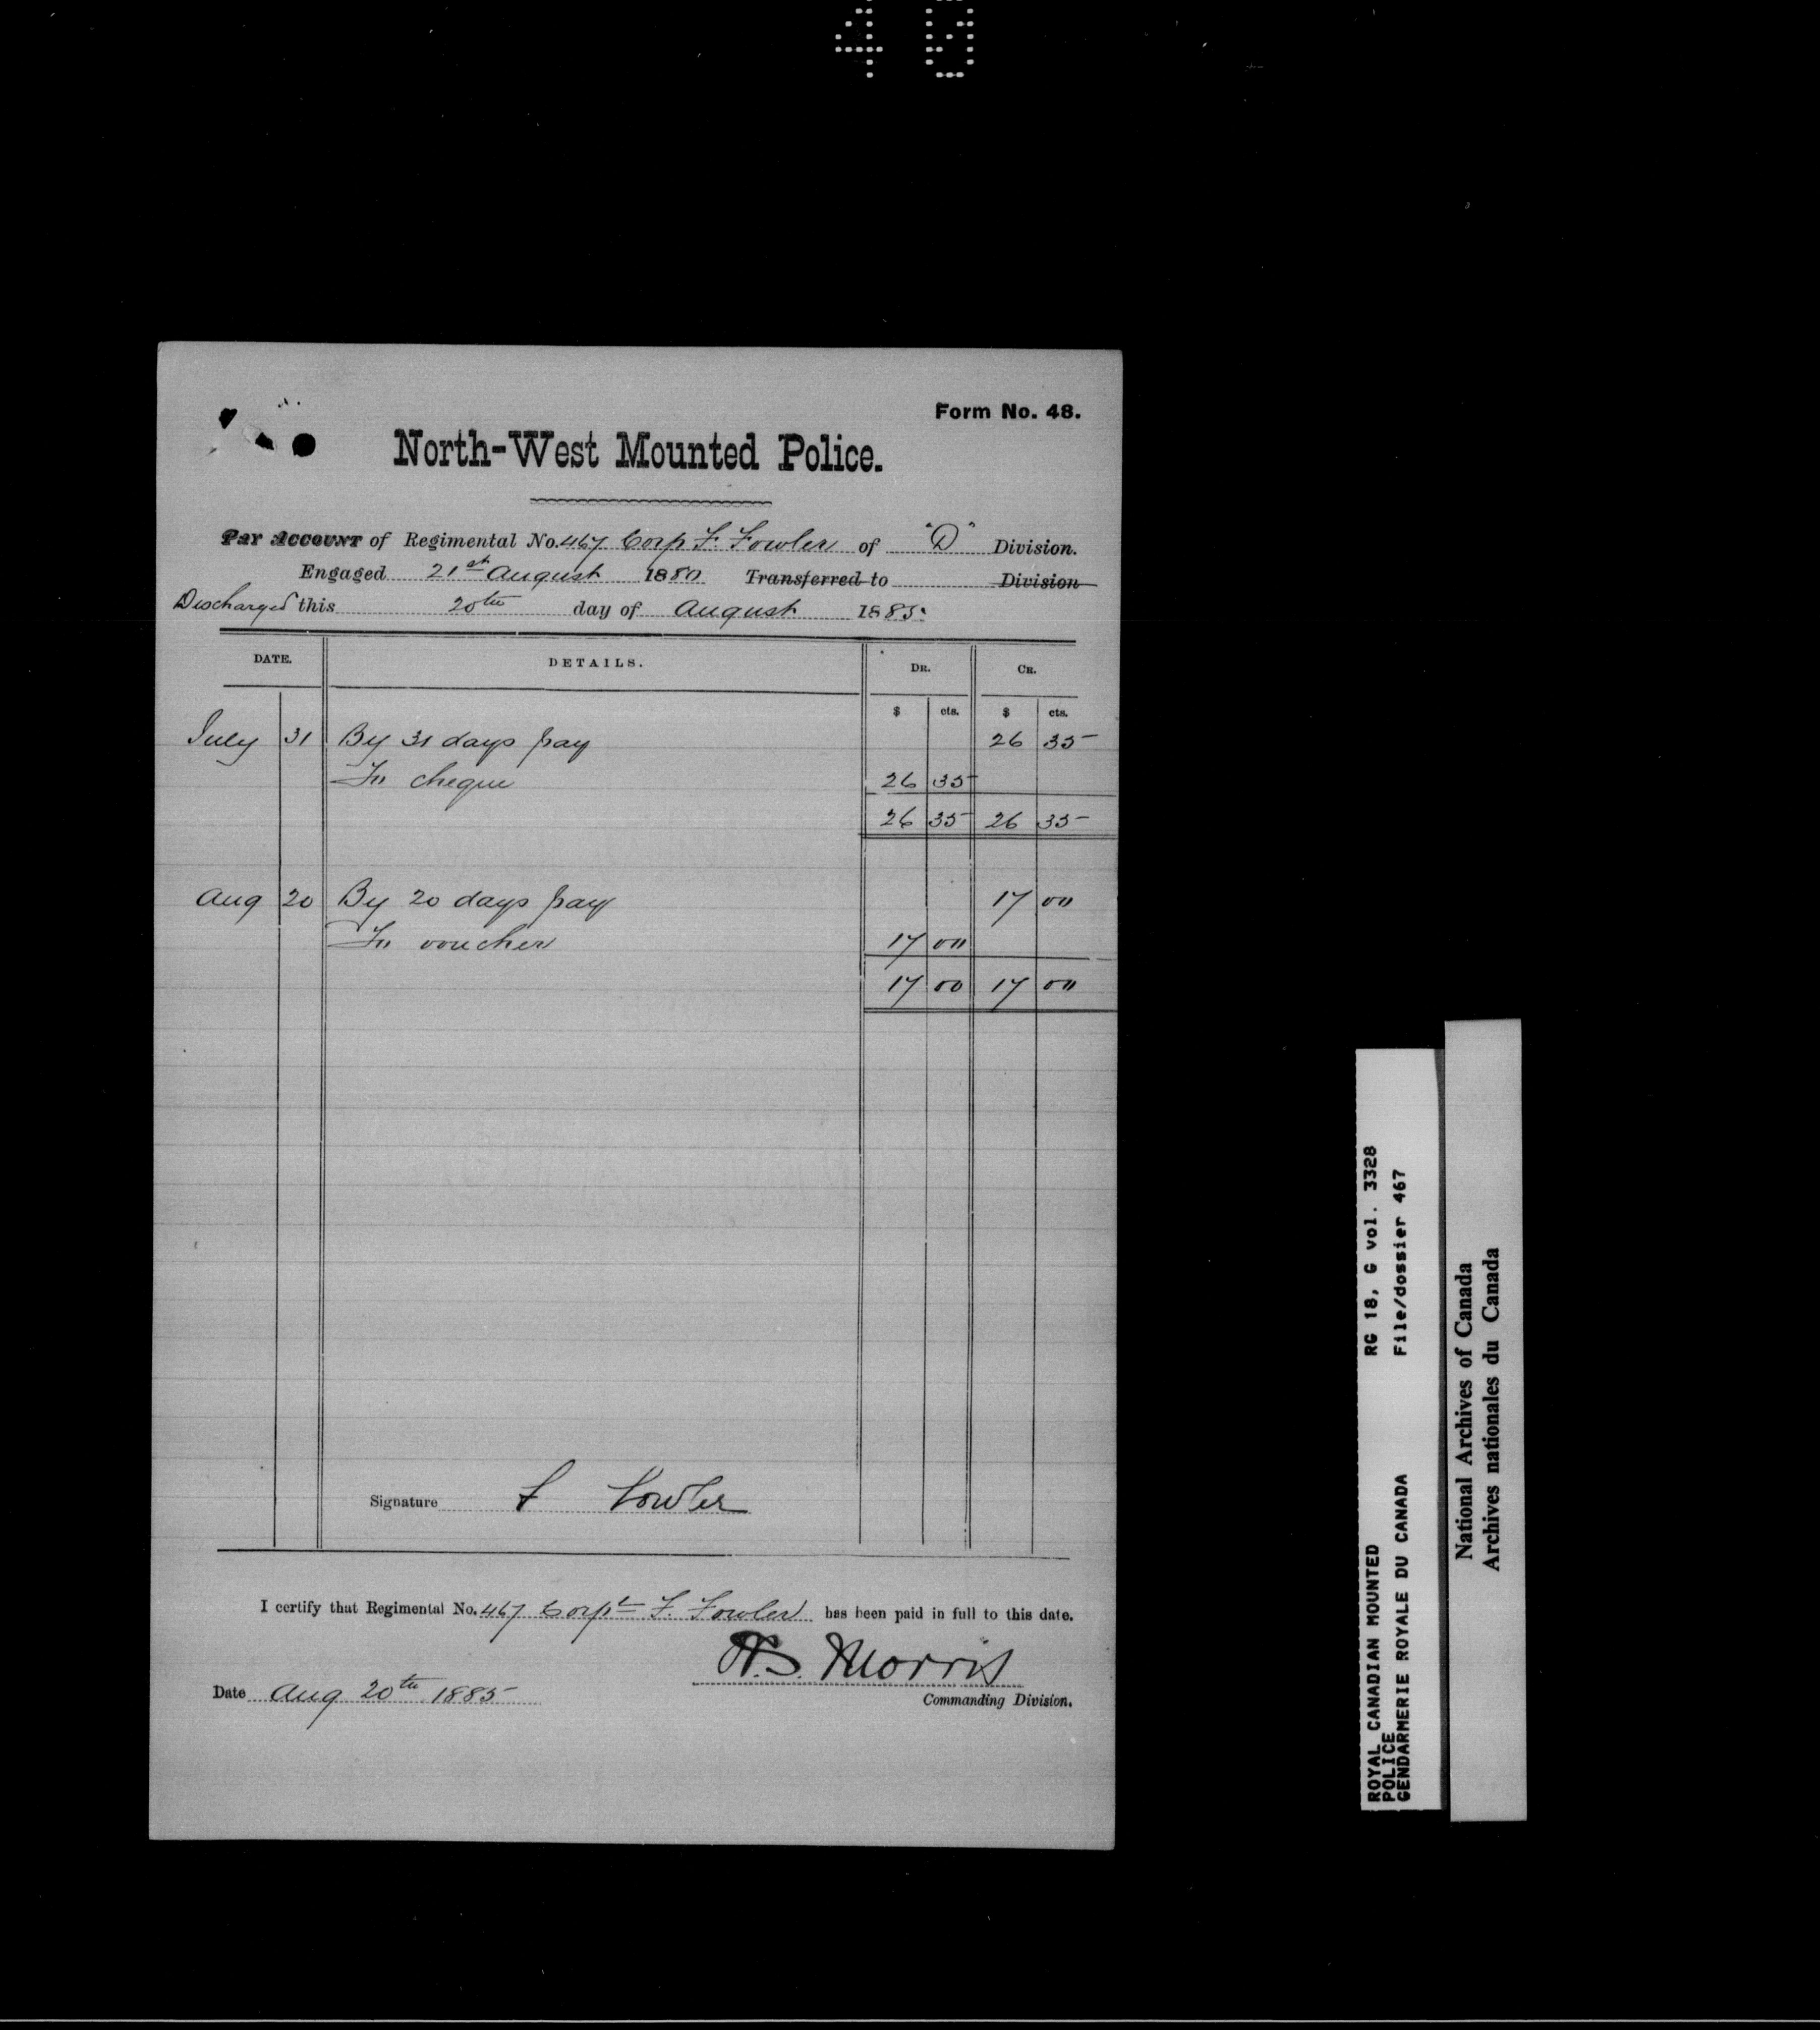 40
Form No. 48.
North-West Mounted Police.
Pay Account of Regimental No. 467 Corp F. Fowler of "D" Division.
Engaged 21st August 1880 Transferred to Division
Discharged this 20th day of August 1885.
DATE. DETAILS. DR. CR.
$ cts. $ cts.
July 31 By 31 days pay 26 35
To cheque 26 35
26 35 26 35
Aug 20 By 20 days pay 17 00
To voucher 17 00
17 00 17 00
Signature F Fowler
I certify that Regimental No. 467 Corpl F. Fowler has been paid in full to this date.
Date Aug 20th 1885 Morris
Commanding Division.
ROYAL CANADIAN MOUNTED RG 18, G vol. 3328
POLICE
GENDARMERIE ROYALE DU CANADA File/dossier 467
National Archives of Canada
Archives nationales du Canada